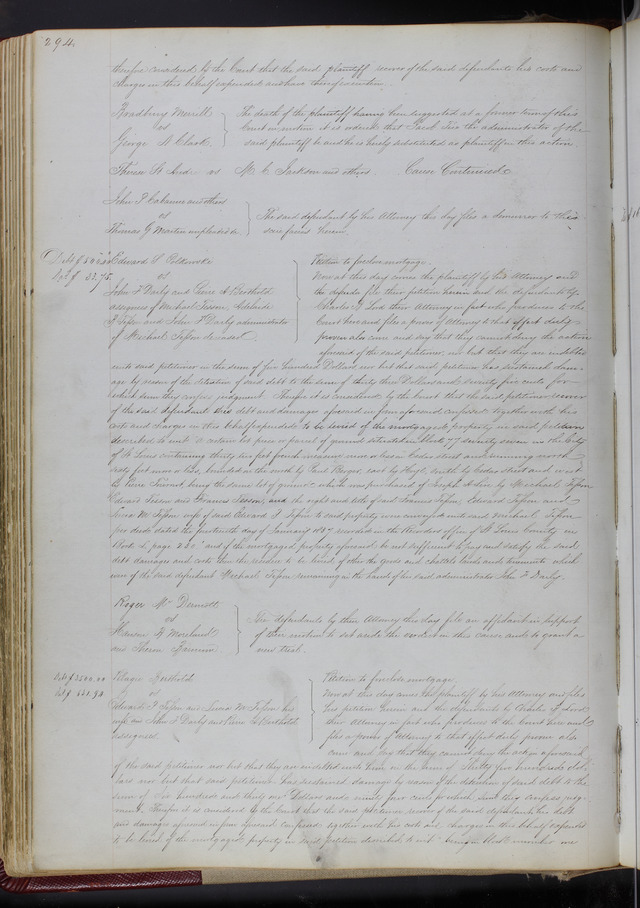 294
therefore considered by the Court that the said plaintiff recover of the said defendants his costs and
charges in this behalf expended and have therefor execution.
Bradbury Merrill
vs
George W Clark
The death of the plaintiff having been suggested at a former term of this
Court on motion it is ordered that the administrator of the
said plaintiff be and he is hereby substituted as plaintiff in this action.
Theron vs M. C. Jackson and others. Cause Continued
John P Cabanne and others
vs
Thomas G Martin impleaded &c
The said defendant by his Attorney this day files a demurrer to this
Debt $ 500.00 Edward S.
Dgs $ 33.75.
vs
John F Darby and Pierre A Berthold
assignees of Michael Tesson, Adelaide
Tesson and John F Darby administrator
of Michael Tesson deceased
Petition to foreclose mortgage.
Now at this day come the plaintiff by his Attorney and
the defendants by
Charles F Lord their Attorney in fact who produces to the
Court here and files a power of Attorney to that effect duly
proven also come and say that they cannot deny the action
aforesaid of the said petitioner, nor but that they are indebted
unto said petitioner in the sum of five hundred Dollars, nor but that said petitioner has sustained dam-
age by reason of the detention of said debt to the sum of thirty three Dollars and seventy five cents for
which sum they confess judgment. Therefore it is considered by the Court that the said petitioner recover
of the said defendants his debt and damages aforesaid in form aforesaid confessed together with his
costs and charges in this behalf expended to be levied of the mortgaged property in said petition
described to wit: A certain lot piece or parcel of ground situated in Block 77 seventy seven in the City
of St Louis containing thirty six feet front more or less on Cedar street and running north
sixty feet more or less, bounded on the north by Paul Berger, east by Hoyle, south by Cedar street and west
by Pierre being the same lot of ground which was purchased of Joseph by Michael Tesson
Edward Tesson and Francis Tesson, and the right and title of said Francis Tesson, Edward Tesson and
M. Tesson wife of said Edward P Tesson to said property were conveyed unto said Michael Tesson
per deeds dated the fourteenth day of January 1847 recorded in the Recorders office of St Louis County in
Book page 230 and if the mortgaged property aforesaid be not sufficient to pay and satisfy the said
debt damages and costs then the residue to be levied of other the goods and chattels lands and tenements which
were of the said defendant Michael Tesson remaining in the hands of his said administrator John F Darby.
Roger McDermott
vs
F Moreland
and
The defendants by their Attorney this day file an affidavit in support
of their motion to set aside the verdict in this cause and to grant a
new trial.
Debt $3500.00
Dgs $ 631.94
Berthold
vs
Edward P Tesson and M Tesson his
wife and John F Darby and Pierre A Berthold
assignees
Petition to foreclose mortgage
Now at this day comes the plaintiff by his Attorney and files
his petition herein and the defendants by Charles F Lord
their Attorney in fact who produces to the Court here and
files a power of Attorney to that effect duly proven also
come and say that they cannot deny the action aforesaid
of the said petitioner nor but that they are indebted unto him in the sum of Thirty five hundred dol-
lars nor but that said petitioner has sustained damages by reason of the detention of said debt to the
sum of Six hundred and thirty one Dollars and ninety four cents for which sum they confess judg-
ment. Therefore it is considered by the Court that the said petitioner recover of the said defendants his debt
and damages aforesaid in form aforesaid confessed together with his costs and charges in this behalf expended
to be levied of the mortgaged property in said petition described to wit: